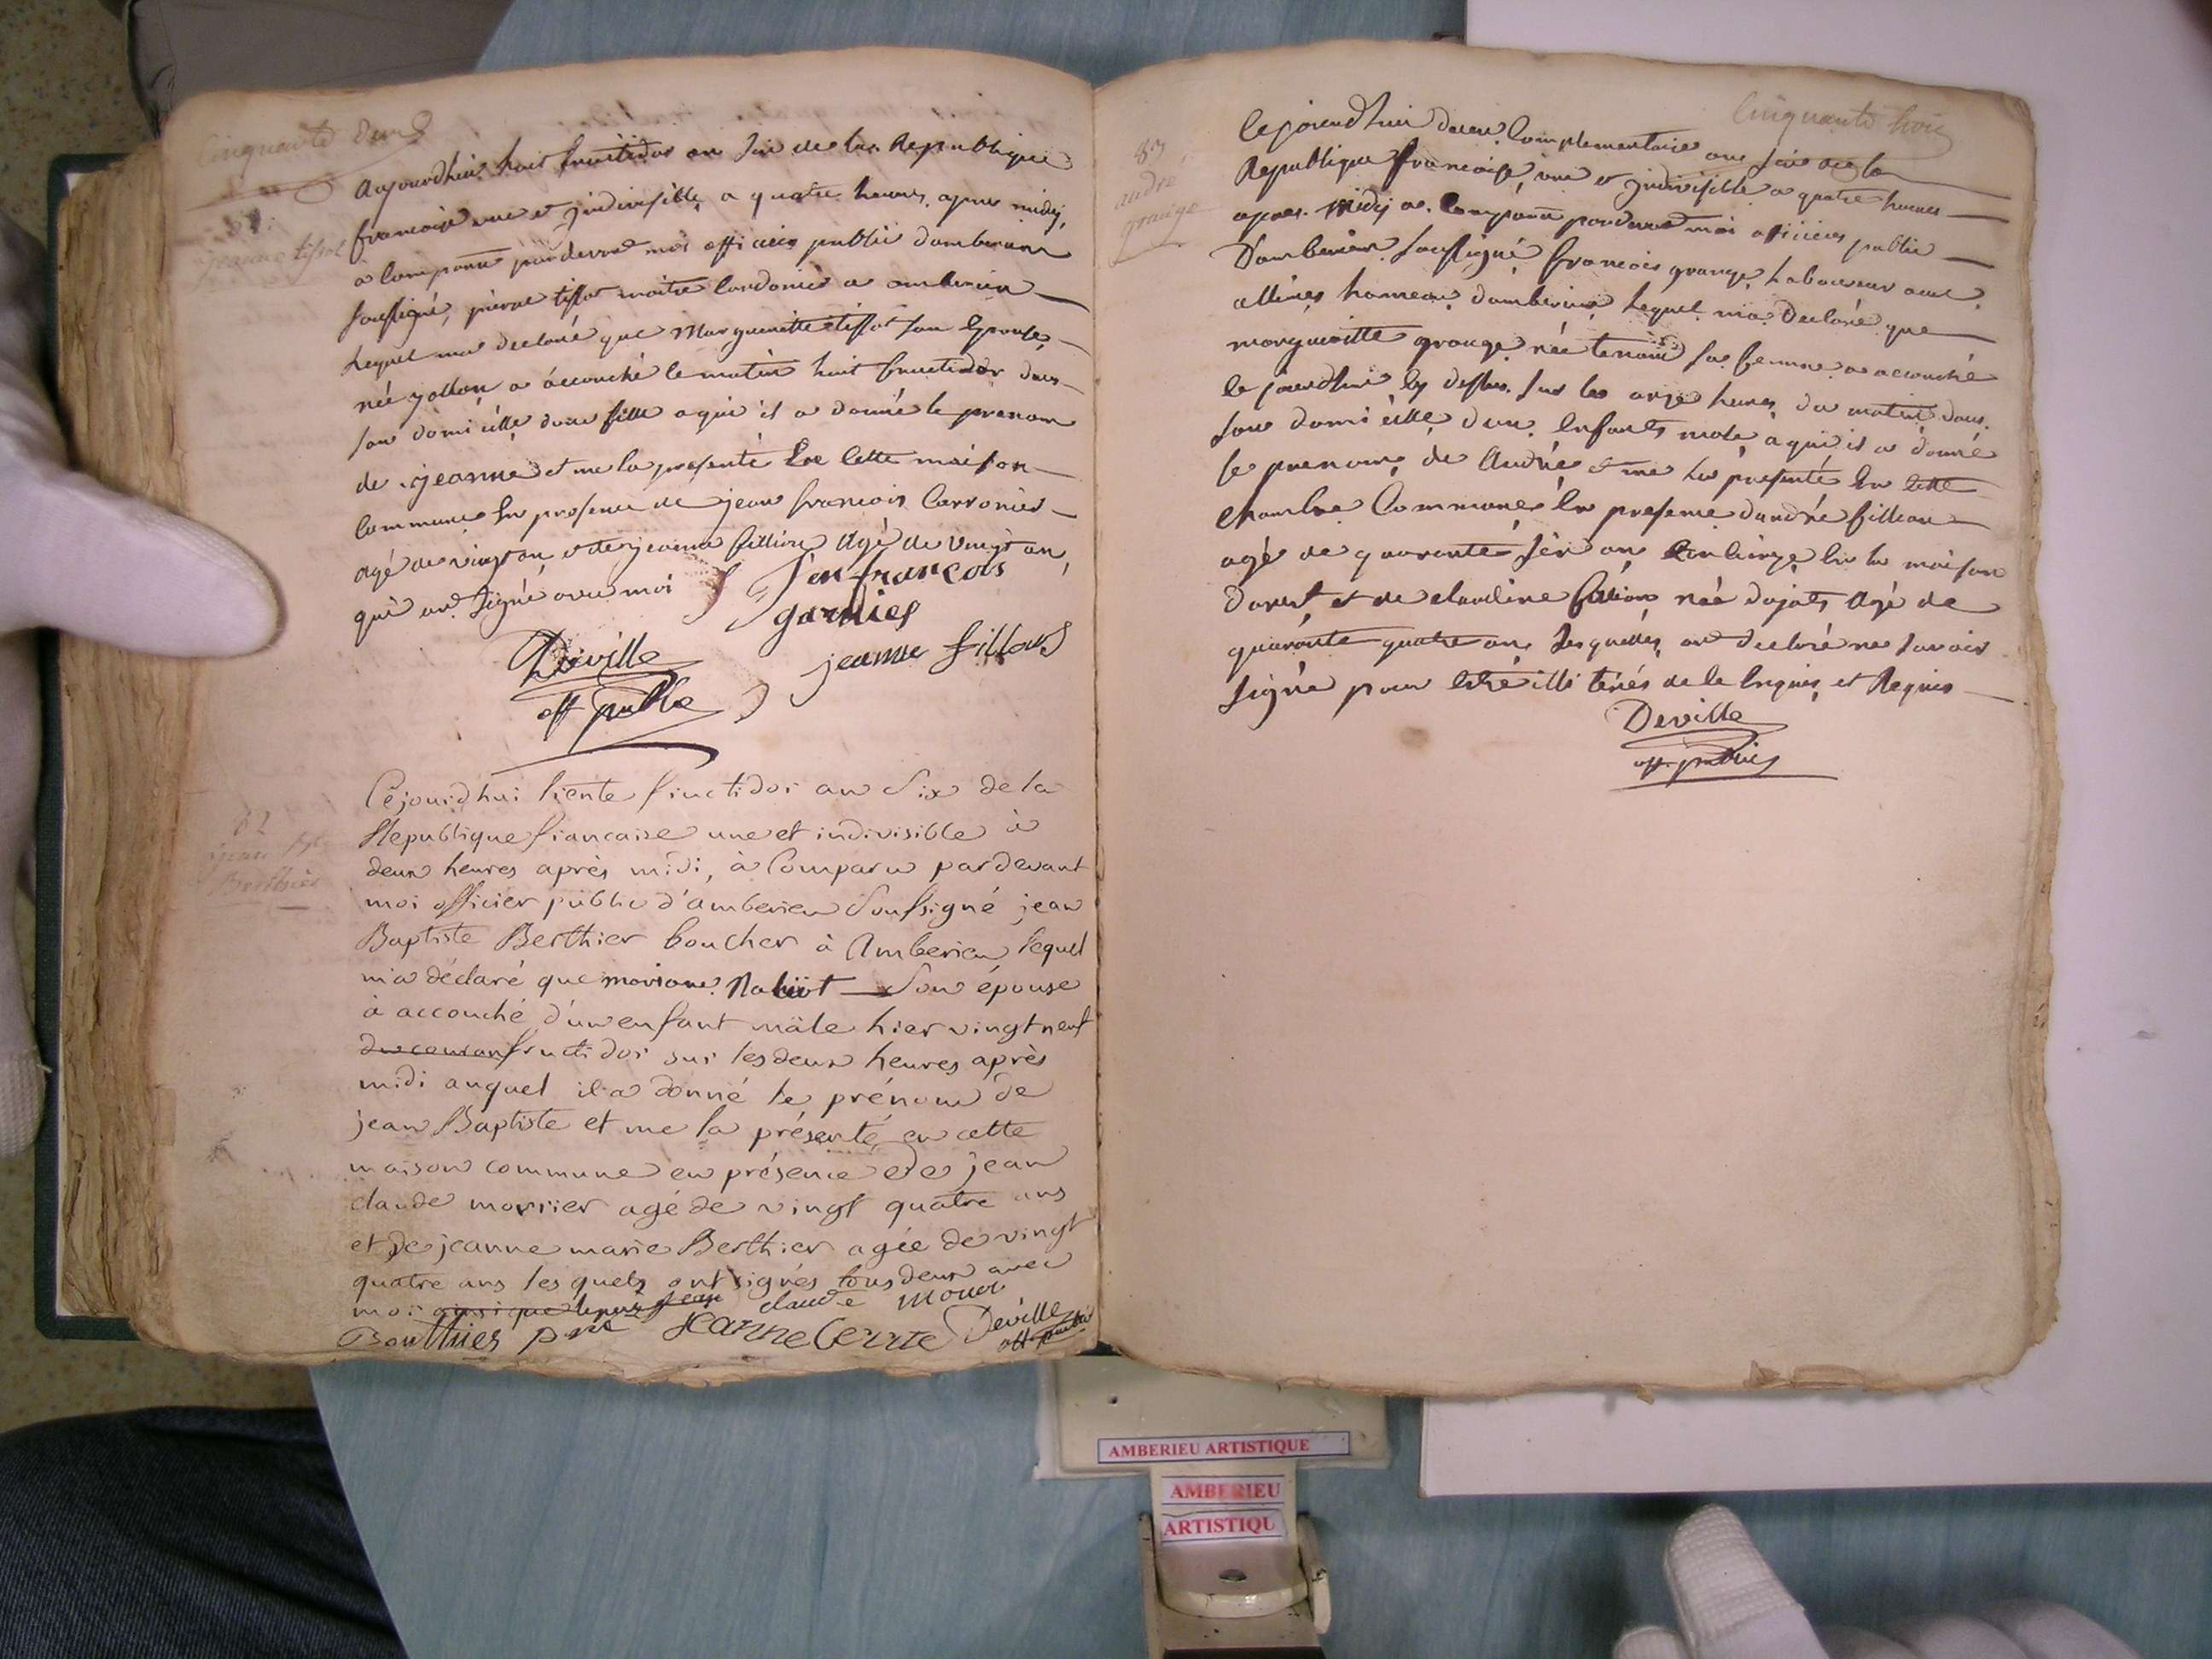 cinquante deux
81.
jeanne tissot
aujourdhui huit fructidor an six de la Republique
francoise une et jndivisible a quatre heures apres midy,
a comparu pardevant moi officier public damberieu
sousigné, pierre tissot maitre cordonier a amberieu
Lequel ma declaré que Margueritte tissot son Epouse
née jollon a accouché le matin huit fructidor dans
son domicille dune fille a qui il a donné le prenom
de jeanne et me la presenté En Cette maison
Commune En presence de jean francois
agé de vingt an, et de jeanne fillion agé de vingt an,
qui ont signé avec moi
francois
garnier
jeanne fillon
Deville
off public
82
jean Bte
Berthier
Cejourd'hui trente fructidor an Six de la
République francaise une et indivisible à
deux heures après midi, à Comparu pardevant
moi officier public d'amberieu Soussigné jean
Baptiste Berthier boucher à Amberieu, lequel
m'a déclaré que mariane Son épouse
à accouché d'un enfant mâle hier vingt neuf
du couran fructidor sur les deux heures après
midi auquel il a donné le prénom de
jean Baptiste et me la présenté en cette
maison commune en présence de jean
claude morrier agé de vingt quatre ans
et de jeanne marie Berthier agée de vingt
quatre ans lesquels ont signés tous deux avec
moi claude
jeanne Deville
off public
cinquante trois
83
andré
grange
Cejourdhuy deux Complementaire an six de la
Republique francoise, une et jndivisible a quatre heures
apres midy a Comparu pardevant moi officier public
Damberieu sousigné francois grange Laboureur aux
allimes hameau damberieu Lequel ma Declaré que
margueritte grange née tenand sa femme a accouché
Cejourdhui Cy dessus sur les onze heures du matin dans
son domicille dun Enfant male a qui il a donné
le prenom de André et me la presenté En Cette
chambre Commune En presence dandré fillion
agé de quarante six an, Concierge En la maison
et de claudine fillion née dujat, agé de
quarante quatre an, Lesquelles on declaré ne savoir
signé pour Estre illiterés de Ce Enquis, et Requis
Deville
off. public
AMBERIEU ARTISTIQUE
AMBERIEU
ARTISTIQU